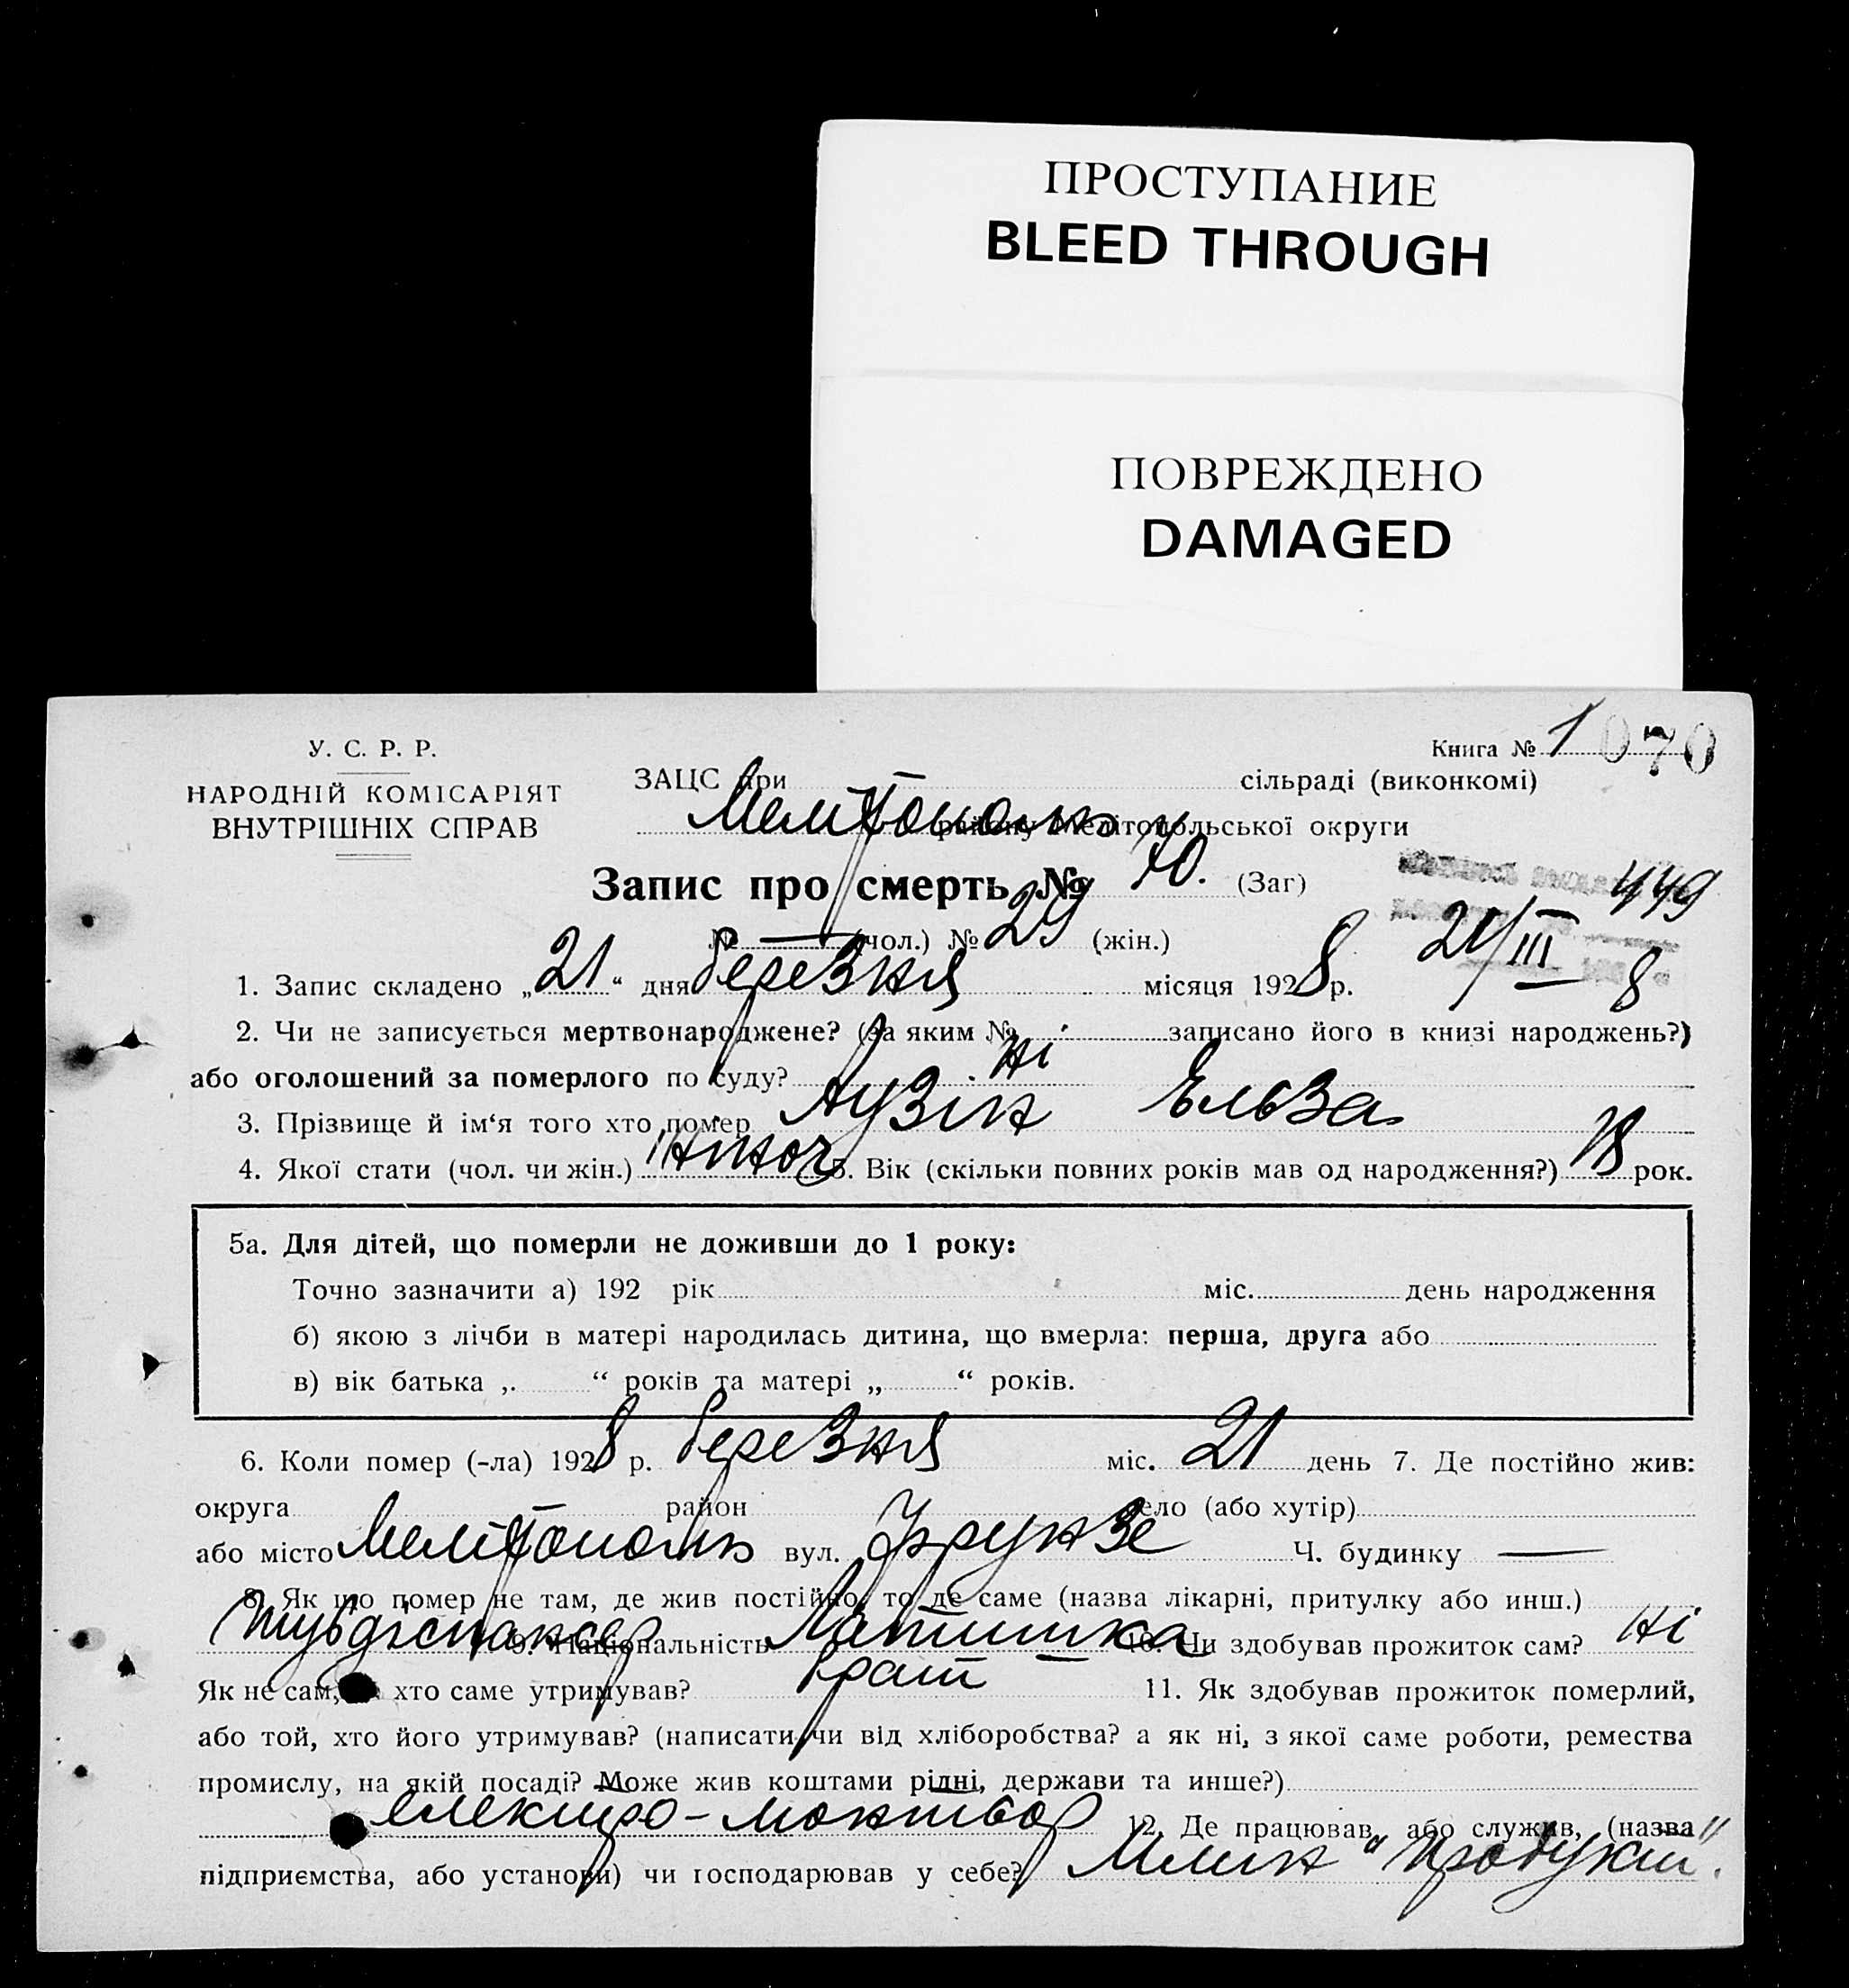 ПРОСТУПАНИЕ
BLEED THROUGH
ПОВРЕЖДЕНО
DAMAGED
У. С. Р. Р.
НАРОДНІЙ КОМІСАРІЯТ
ВНУТРІШНІХ СПРАВ
Книга № 1 070
ЗАЦС при сільраді (виконкомі)
Мелітополь району Мелітопольської округи
Запис про смерть № 70. (Заг) 449
№ — (чол.) № 29 (жін.) 21/III 8
1. Запис складено „21“ дня березня місяця 1928 р.
2. Чи не записується мертвонароджене? (за яким № записано його в книзі народжень?)
або оголошений за померлого по суду? ні
3. Прізвище й ім‘я того хто помер Аузін Ельза
4. Якої стати (чол. чи жін.) жіноч 5. Вік (скільки повних років мав од народження?) 18 рок.
5а. Для дітей, що померли не доживши до 1 року:
Точно зазначити а) 192 рік міс. день народження
б) якою з лічби в матері народилась дитина, що вмерла: перша, друга або
в) вік батька „ “ років та матері „ “ років.
6. Коли помер (-ла) 1928 р. березня міс. 21 день 7. Де постійно жив:
округа район село (або хутір)
або місто Мелітополь вул. Фрунзе Ч. будинку —
8. Як що помер не там, де жив постійно, то де саме (назва лікарні, притулку або инш.)
Тубдіспансер 9. Національність Латишка 10. Чи здобував прожиток сам? ні
Як не сам, хто саме утримував? брат — 11. Як здобував прожиток померлий,
або той, хто його утримував? (написати чи від хліборобства? а як ні, з якої саме роботи, ремества
промислу, на якій посаді? Може жив коштами рідні, держави та инше?)
електро-монтьор 12. Де працював, або служив, (назва
підприємства, або установи) чи господарював у себе? Млин "Продукт".